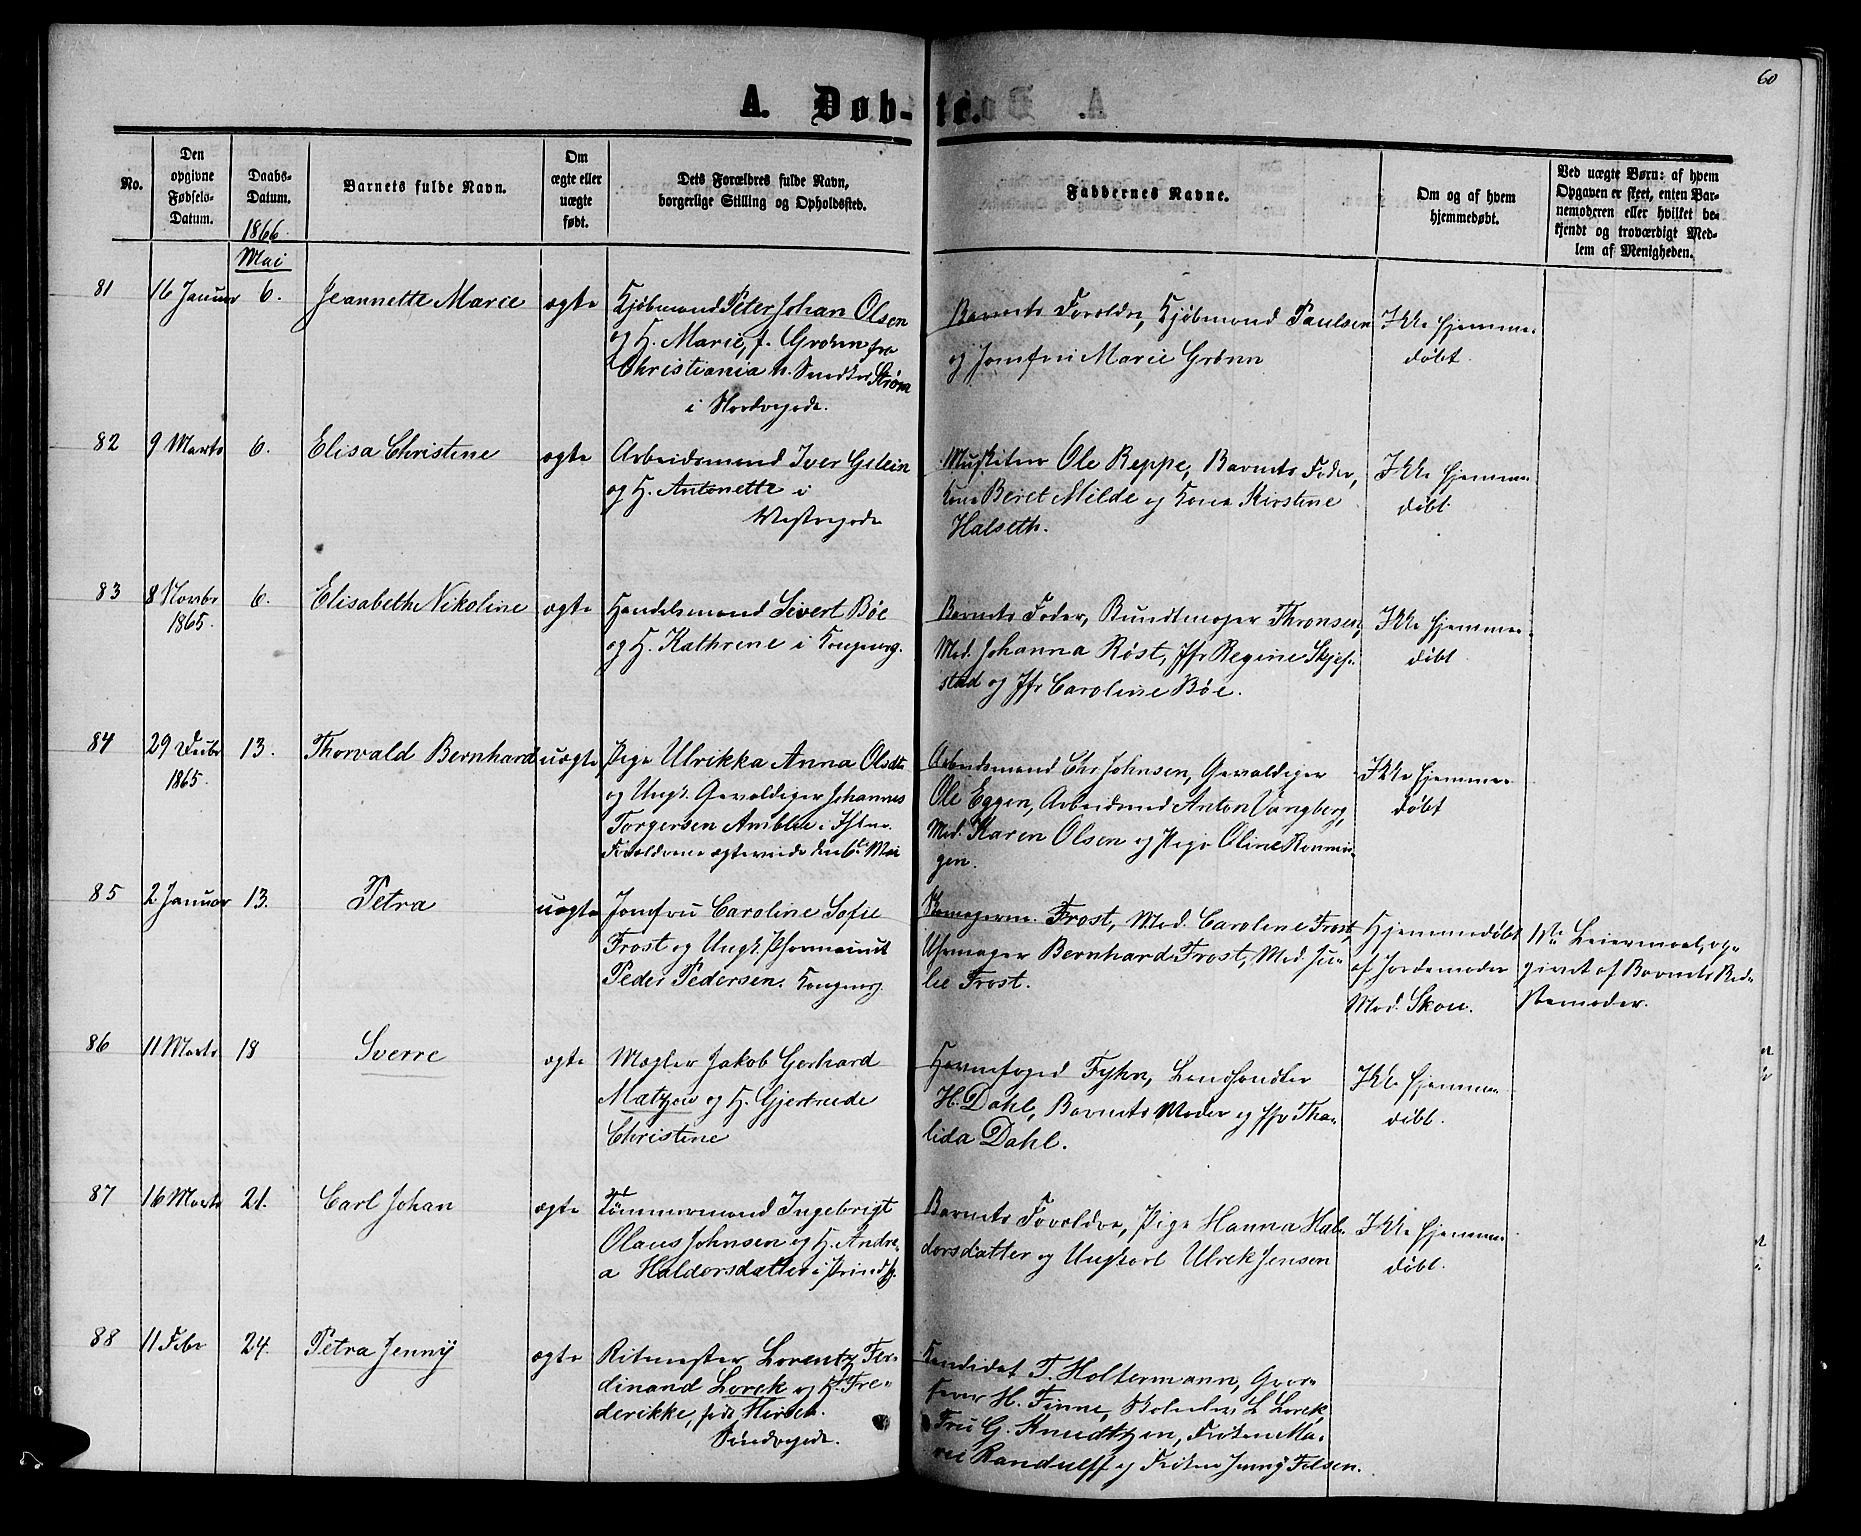 60
A. Døb-te.
No.
Den opgivne Fødsels-Datum.
Daabs-Datum.
Barnets fulde Navn.
Om ægte eller uægte født.
Dets Forældres fulde Navn, borgerlige Stilling og Opholdssted.
Faddernes Navne.
Om og af hvem hjemmedøbt.
Ved uægte Børn: af hvem Opgaven er skeet, enten Barnemoderen eller hvilket bekjendt og troværdigt Medlem af Menigheden.
1866.
Mai
81 16 Januar 6. Jeannette Marie ægte
Kjøbmand Peter Johan Olsen
og H. Marie, f. Grønn fra
Christiania h. Snedker Strøm
i Nordregade.
Barnets Forældre, Kjøbmand Paulsen
og Jomfru Marie Grønn
Ikke hjemme-
døbt.
82 9 Marts 6. Elisa Christine ægte
Arbeidsmand Iver Gslein
og H. Antonette i
Vestregade
Musketeer Ole Reppe, Barnets Fader,
Kone Beret Milde og Kone Kirstine
Halseth.
Ikke hjemme-
døbt.
83 8 Novbr 6. Elisabeth Nikoline ægte
1865.
Handelsmand Sivert Bøe
og H. Kathrene i Kongensg.
Barnets Fader, Bundtmager Thronsen,
Mad. Johanna Røst, Jfr Regine Skjef-
stad og Jfr Caroline Bøe.
Ikke hjemme-
døbt
84 29 Decbr 13. Thorvald Bernhard uægte
1865.
Pige Ulrikka Anna Olsdtr
og Ungk. Gevaldiger Johannes
Torgersen Amblie i
Forældrene ægteviede den 6te Mai
Arbeidsmand Chr Johnsen, Gevaldiger
Ole Eggen, Arbeidsmd Anton Vangberg,
Mad. Karen Olsen og Pige Oline Rennin-
gen.
Ikke hjemme-
døbt
85 2 Januar 13. Petra uægte
Jomfru Caroline Sofie
Frost og Ungk. Pharmaceut
Peder Pedersen. Kongensg.
Frost, Mad. Caroline Frost,
Uhrmager Bernhard Frost, Mad. Ju-
lie Frost.
Hjemmedøbt
af Jordemoder
Mad. Skou.
1ste Leiermaal, op-
givet af Barnets Bed-
stemoder.
86 11 Marts 18 Sverre ægte
Mægler Jakob Gerhard
Matzou og H. Gjertrude
Christine
Havnefoged Fyhn, Landhandler
H. Dahl, Barnets Moder og Jfr Tha-
lida Dahl.
Ikke hjemme-
døbt.
87 16 Marts 21. Carl Johan ægte
Tømmermand Ingebrigt
Olaus Johnsen og H. Andre-
a Haldorsdatter i Prindsg.
Barnets Forældre, Pige Hanna Hal-
dorsdatter og Ungkarl Ulrik Jensen
Ikke hjemme-
døbt.
88 11 Febr 24. Petra Jenny ægte
Ritmester Lorentz Fer-
dinand Lorck og H. Fre-
derikke, født Hirsch.
Søndregade.
Kandidat T. Holtermann, Gros-
serer H. Finne, L Lorck,
Fru G. Knudtzon, Frøken Ma-
rie Randulff og Frøken Jenny Folsen.